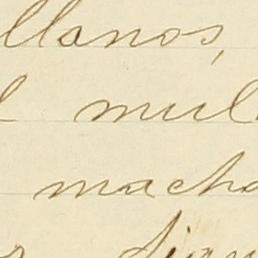 llanos,
l mul
macha
s dign